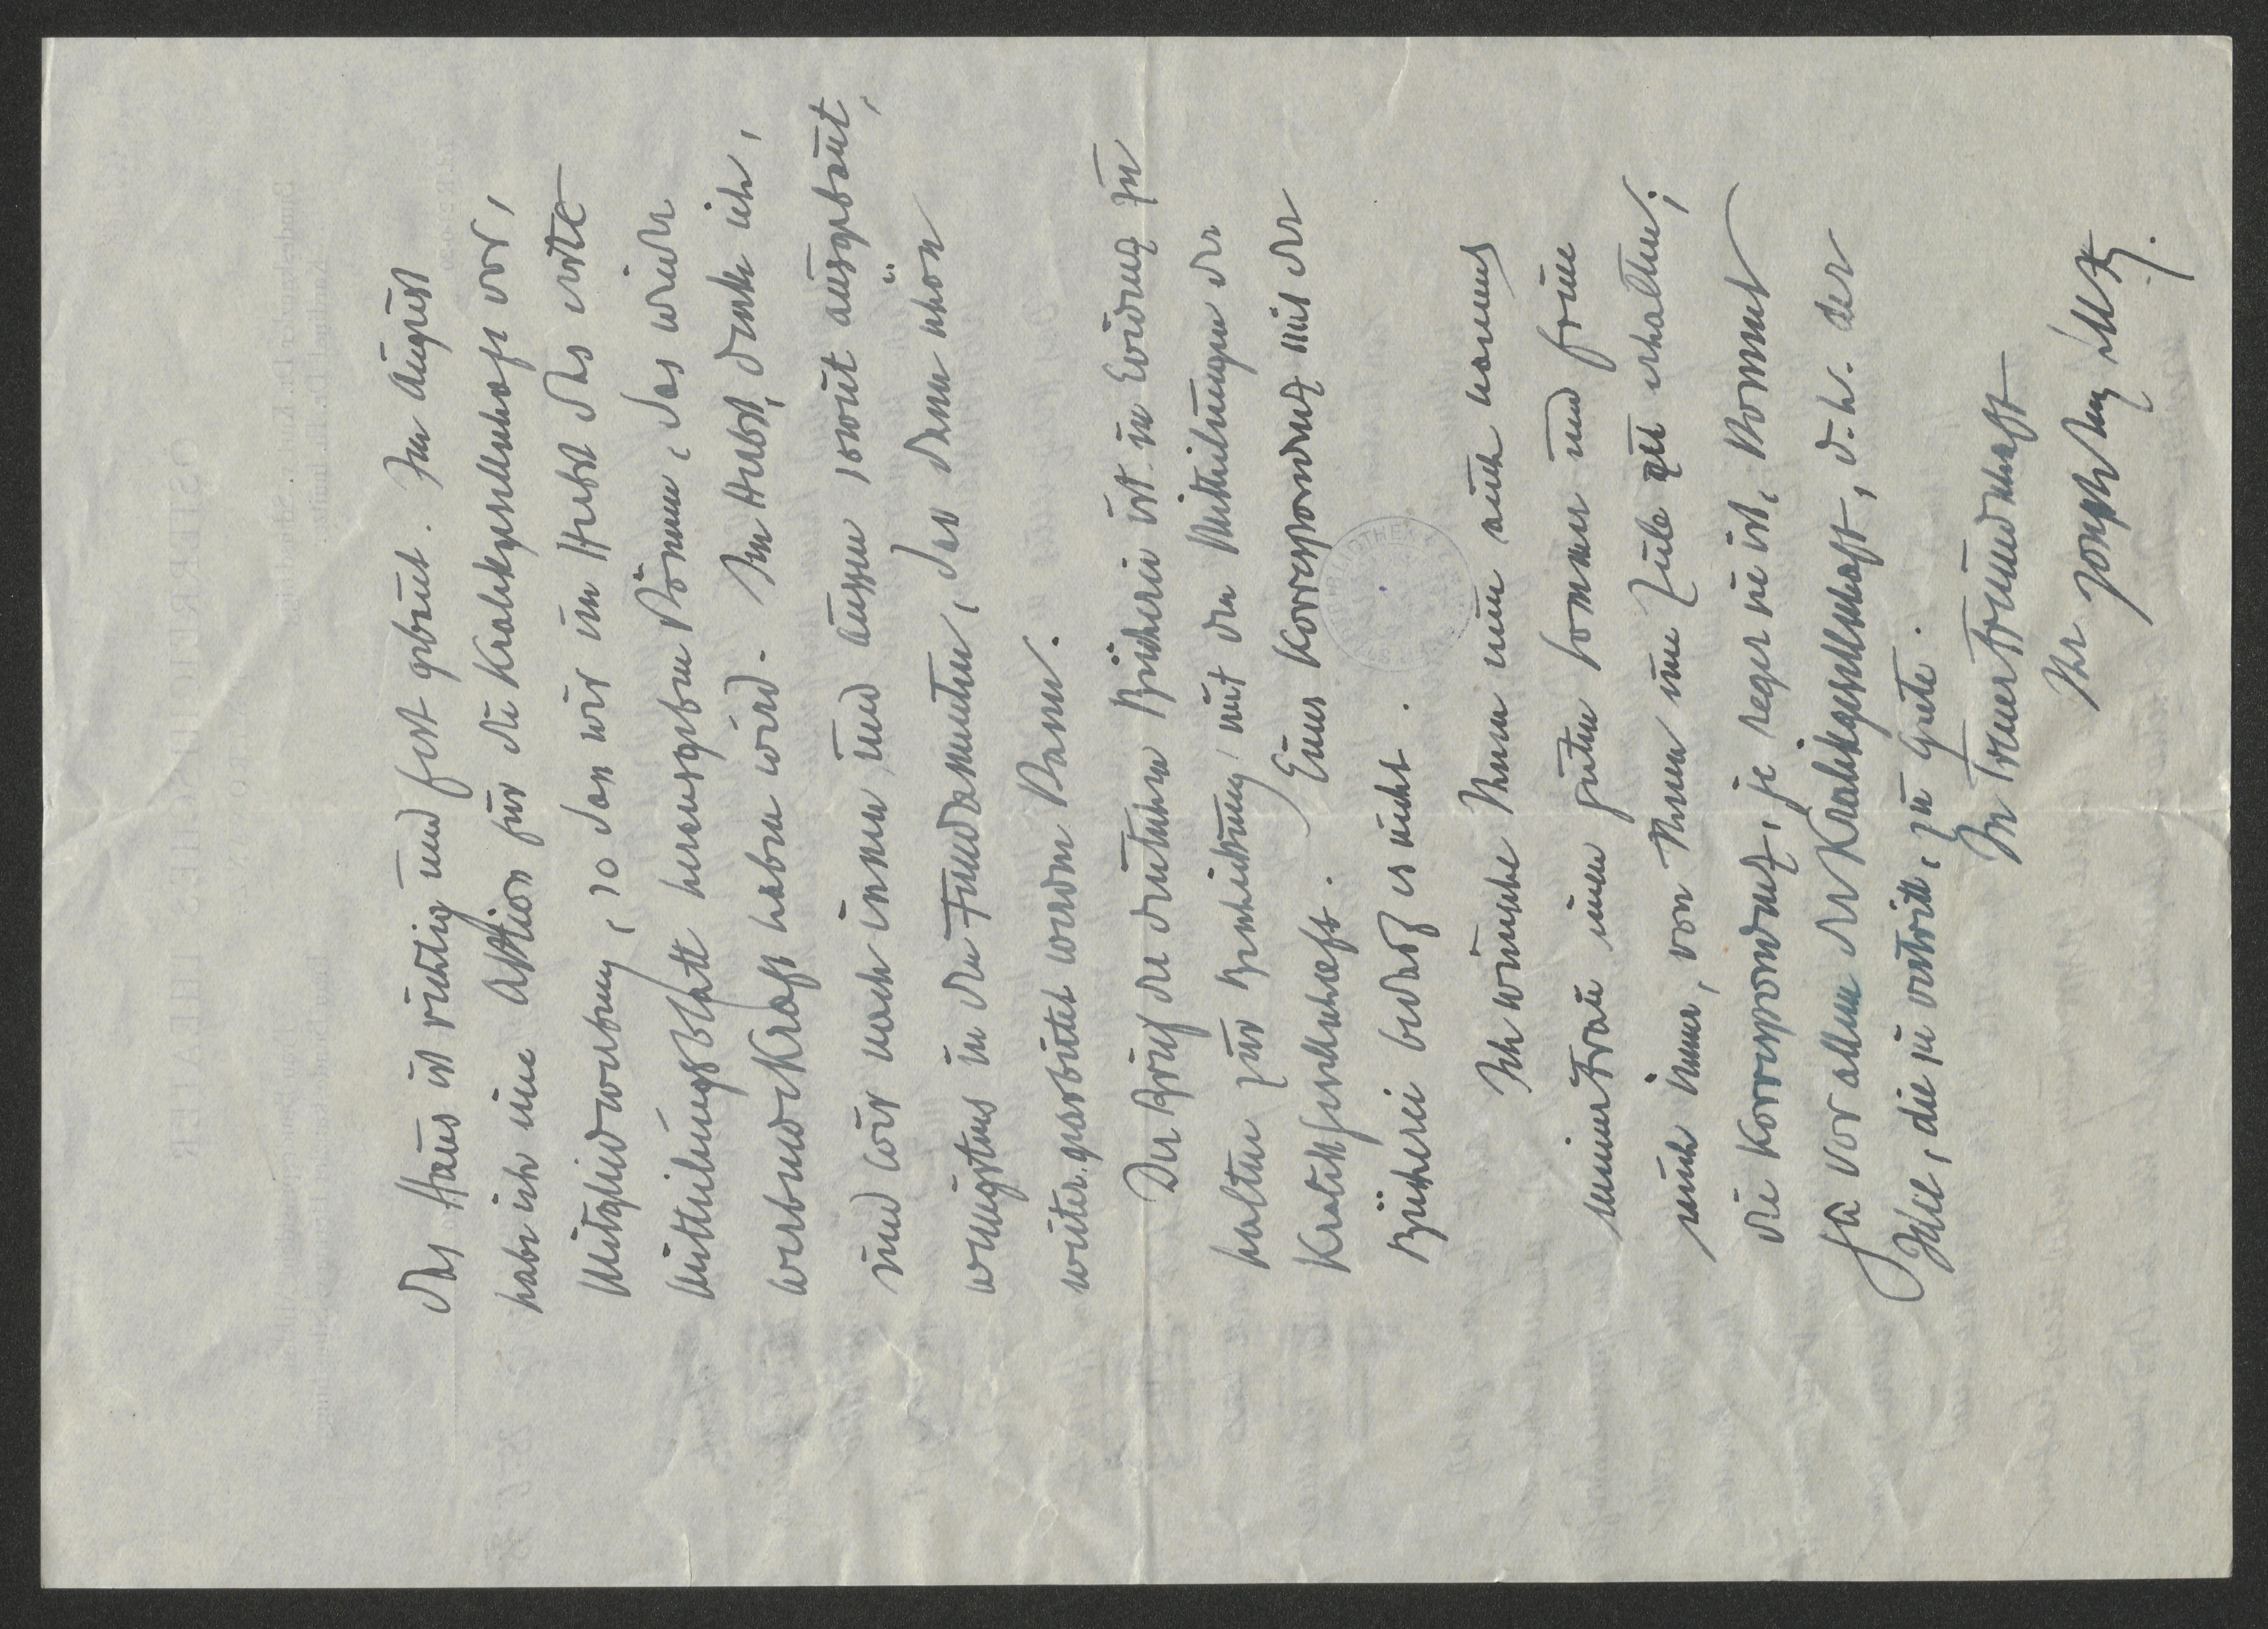 das Haus ist richtig und fest gebaut. Im August
habe ich eine Aktion für die Kralikgesellschaft vor,
Mitgliedwerbung, so dass wir im Herbst das erste
Mitteilungsblatt herausgeben können, das wieder
werbende Kraft haben wird. Im Herbst, denke ich,
sind wir nach innen und aussen soweit ausgebaut,
wenigstens in den Fundamenten, dass dann schön
weiter gearbeitet werden kann.
Der Brief der deutschen Bücherei ist in Evidenz zu
halten zur Beschickung mit den Mitteilungen der
Kralikgesellschaft. Einer Korrespondenz mit der
Bücherei bedarf es nicht.
Ich wünsche Ihnen nun auch namens
meiner Frau einen guten Sommer und freue
mich immer, von Ihnen eine Zeile zu erhalten;
die Korrespondenz, je reger sie ist, kommt
ja vor allem der Kralikgesellschaft, d.h. der
Idee, die sie vertritt, zu gute.
In Treuer Freundschaft
Ihr Joseph Aug